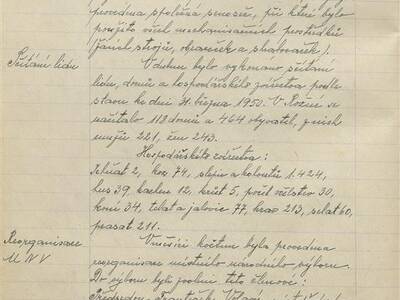 provedena společná senoseč, při které bylo
použito všech mechanisačních prostředků
(žacích strojů, obraceček a shrabovaček).
Sčítání lidu
V dubnu bylo vykonáno sčítání
lidu, domů a hospodářského zvířectva podle
stavu ke dni 31. března 1950. V Rožné se
načítalo 112 domů a 464 obyvatel, z nich
mužů 221, žen 243.
Hospodářského zvířectva:
2, koz 74, slepic a kohoutů 1.424,
hus 39, kachen 12, krůt 5, počet včelstev 30,
koní 34, telat a jalovic 77, krav 213, selat 60,
prasat 211.
Reorganisace
M N V
V měsíci květnu byla provedena
reorganisace místního národního výboru.
Do výboru byli zvoleni tito členové:
Předsedou František